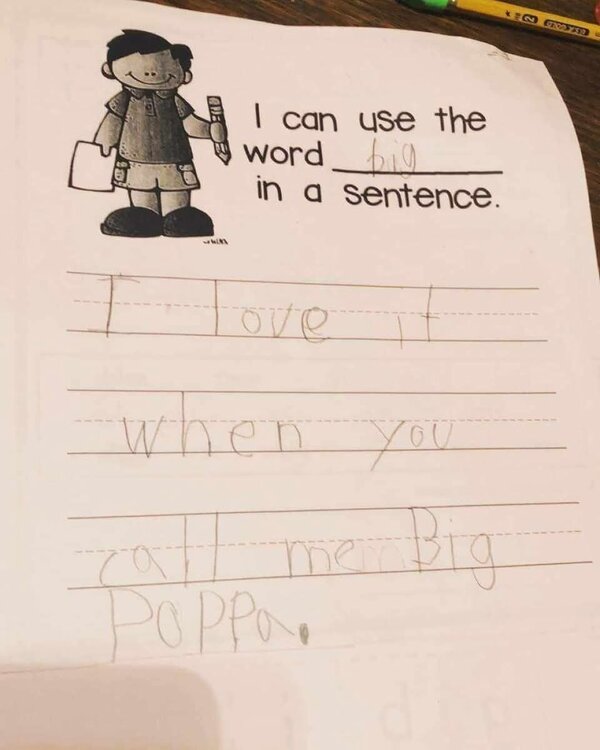 I can use the
word big
in a sentence.
I love it
when you
call me Big
Poppa.